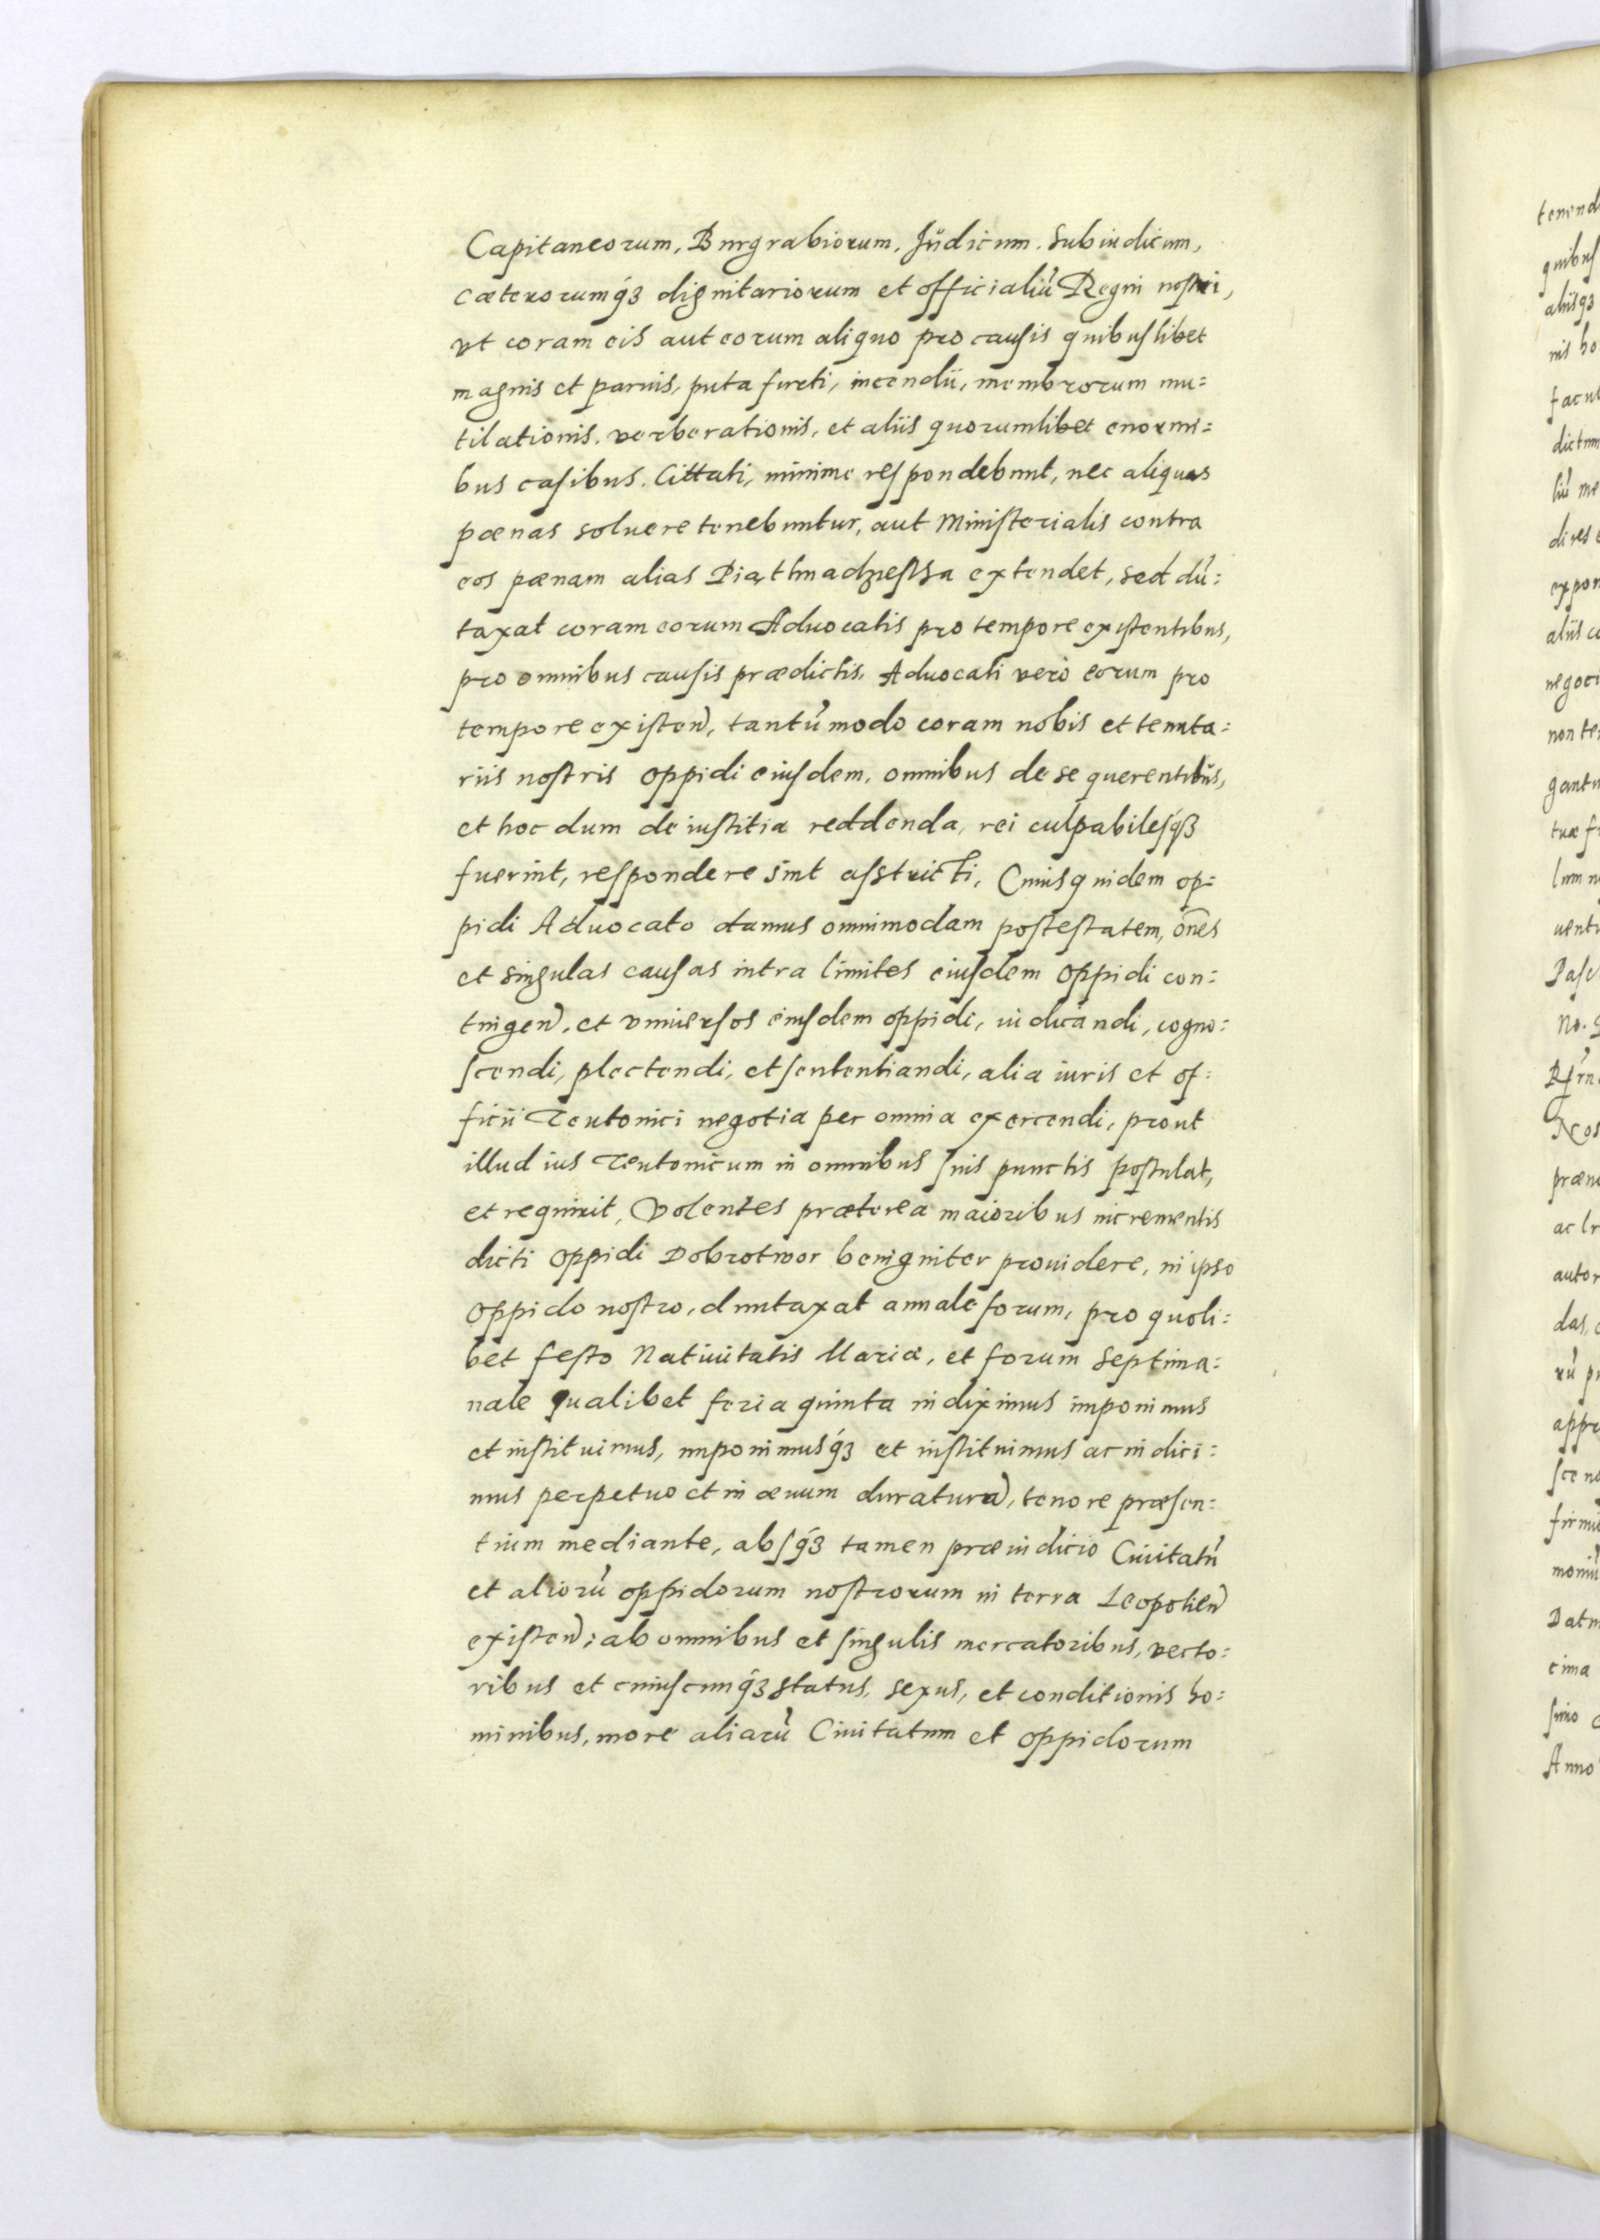 Capitaneorum, Burgrabiorum, Judicum, Subiudicum,
cæterorumq́ꝫ dignitariorum et officialiũ Regni nostri,
vt coram eis aut eorum aliquo pro causis quibuslibet
magnis et paruis, puta furti, incendii, membrorum mu=
tilationis, verberationis, et aliis quorumlibet enormi=
bus casibus. Cittati, minime respondebunt, nec aliquas
pœnas soluere tenebuntur, aut Ministerialis contra
eos pœnam alias extendet, sed dũ=
taxat coram eorum Aduocatis pro tempore existentibus,
pro omnibus causis prædictis. Aduocati verò eorum pro
tempore existeñ, tantũmodo coram nobis et tenuta=
riis nostris oppidi eiusdem, omnibus de se querentibus,
et hoc dum de iustitia reddenda, rei culpabilesq́ꝫ
fuerint, respondere sint asstricti, Cuius quidem op=
pidi Aduocato damus omnimodam postestatem, oẽs
et singulas causas intra limites eiusdem oppidi con=
tingeñ, et vniuersos eiusdem oppidi, iudicandi, cogno=
scendi, plectendi, et sententiandi, alia iuris et of=
ficii Teutonici negotia per omnia exercendi, prout
illud ius Teutonicum in omnibus suis punctis postulat,
et requirit, Volentes præterea maioribus incrementis
dicti oppidi Dobrotwor benigniter prouidere, in ipso
oppido nostro, duntaxat annale forum, pro quoli=
bet festo Natiuitatis Mariæ, et forum septima=
nale qualibet feria quinta indiximus imponimus
et instituimus, imponimusq́ꝫ et instituimus ac indici=
mus perpetuo et in æuum duraturã, tenore præsen=
tium mediante, absq́ꝫ tamen præiudicio Ciuitatũ
et aliorũ oppidorum nostrorum in terra Leopolieñ
existeñ; ab omnibus et singulis mercatoribus, vecto=
ribus et cuiuscunq́ꝫ status, sexus, et conditionis ho=
minibus, more aliarũ Ciuitatum et oppidorum